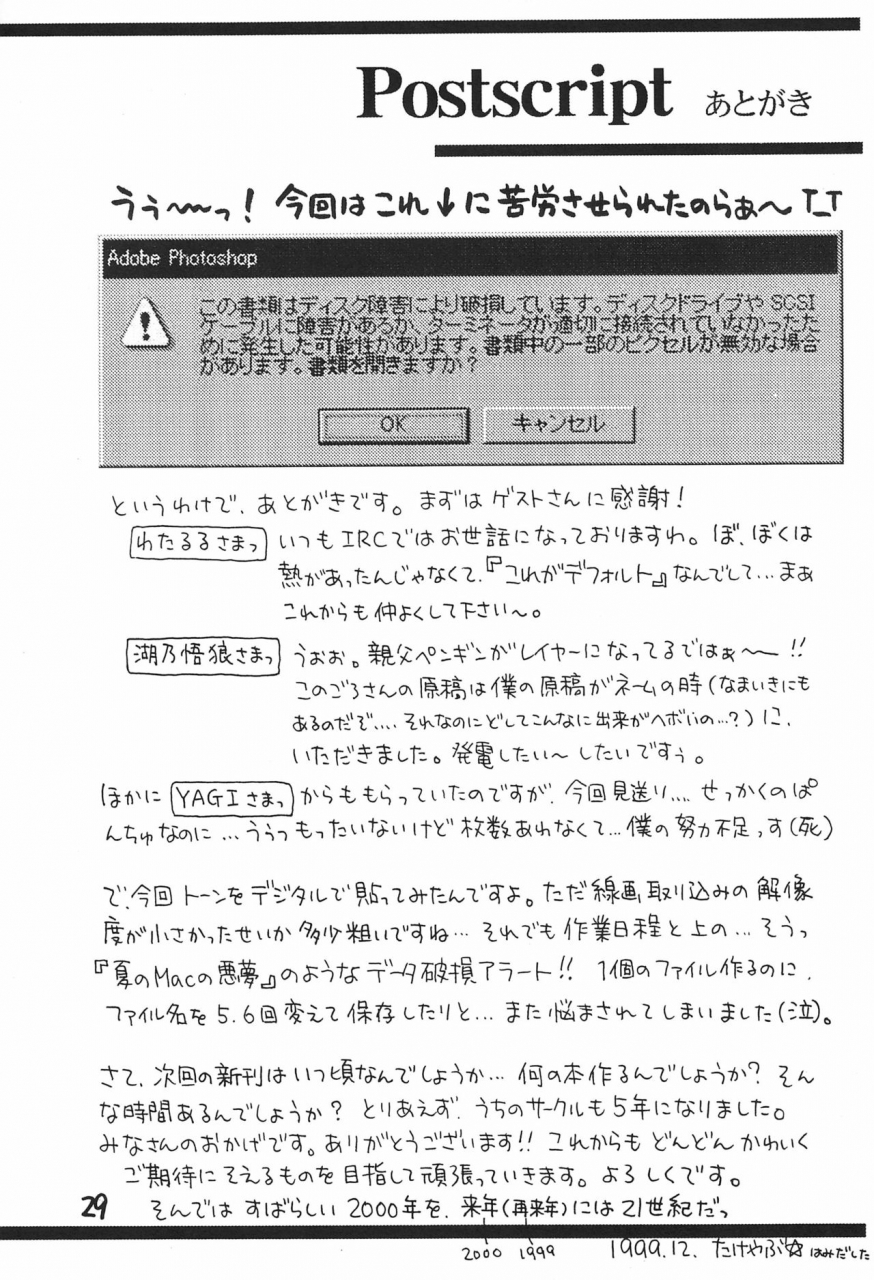 Postscript あとがき
うぅ〜〜っ! 今回はこれ↓に苦労させられたのらぁ〜 T_T
Adobe Photoshop
この書類はディスク障害により破損しています。ディスクドライブや SCSI
ケーブルに障害があるか、ターミネータが適切に接続されていなかったた
めに発生した可能性があります。書類中の一部のピクセルが無効な場合
があります。書類を開きますか?
OK キャンセル
というわけで、あとがきです。まずはゲストさんに感謝!
わたるるさまっ いつもIRCではお世話になっておりますわ。ぼ、ぼくは
熱があったんじゃなくて、『これがデフォルト』なんでして…まぁ
これからも仲よくして下さい〜。
湖乃悟狼さまっ うぉぉ。親父ペンギンがレイヤーになってるではぁ〜〜!!
このごろさんの原稿は僕の原稿がネームの時(なまいきにも
あるのだぞ....それなのにどしてこんなに出来がヘボいの…?)に、
いただきました。発電したい〜したいですぅ。
ほかに YAGIさまっ からももらっていたのですが、今回見送り.... せっかくのぱ
んちゅなのに…ううっもったいないけど枚数あわなくて…僕の努力不足っす(死)
で、今回トーンをデジタルで貼ってみたんですよ。ただ線画取り込みの解像
度が小さかったせいか多少粗いですね…それでも作業日程と上の…そうっ
『夏のMacの悪夢』のようなデータ破損アラート!! 1個のファイル作るのに、
ファイル名を5.6回変えて保存したりと…また悩まされてしまいました(泣)。
さて、次回の新刊はいつ頃なんでしょうか…何の本作るんでしょうか? そん
な時間あるんでしょうか? とりあえず、うちのサークルも5年になりました。
みなさんのおかげです。ありがとうございます!! これからもどんどんかわいく
ご期待にそえるものを目指して頑張っていきます。よろしくです。
29 そんではすばらしい2000年を、来年(再来年)には21世紀だっ
2000 1999 1999.12. たけやぶ☆ はみだした